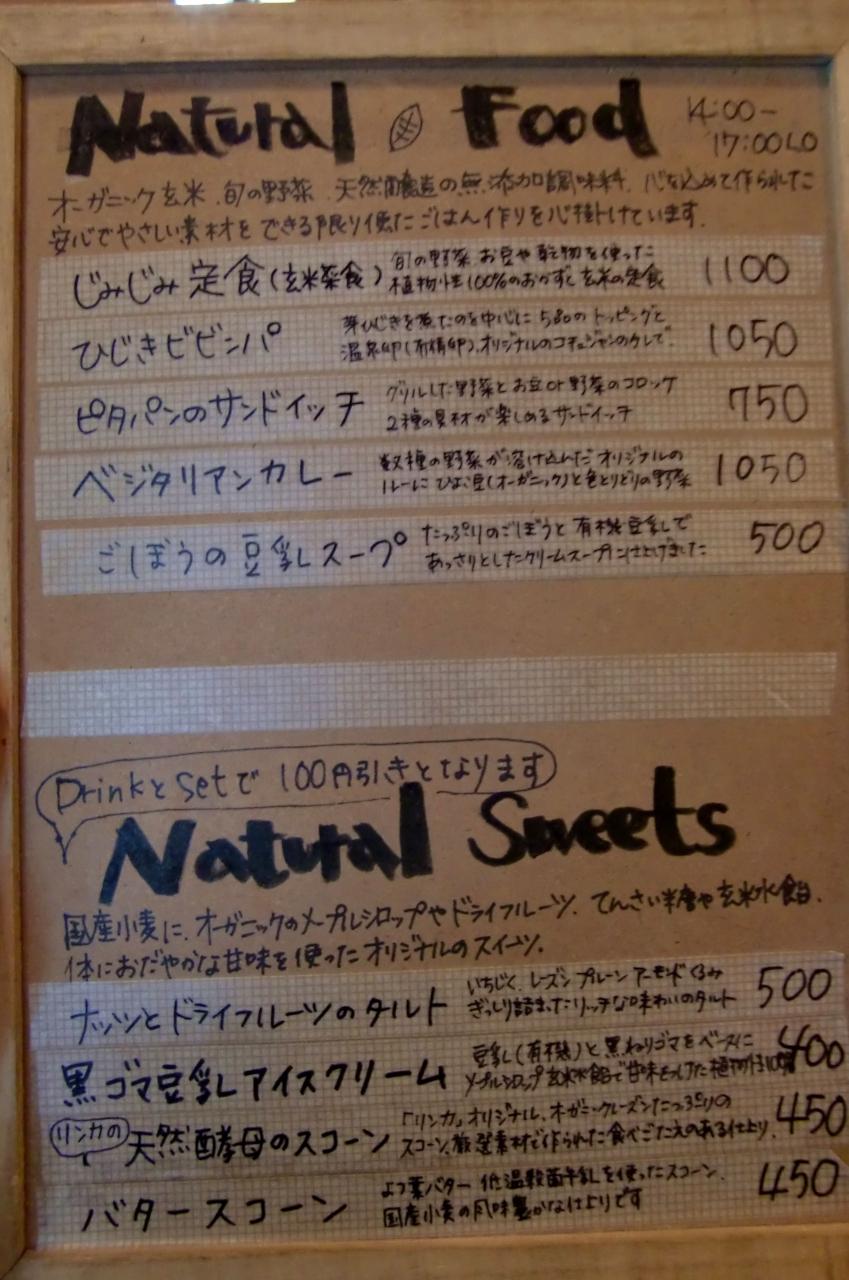 Natural Food 14:00-
17:00LO
オーガニック玄米、旬の野菜、天然醸造の無添加調味料、心を込めて作られた
安心でやさしい素材をできる限り使たごはん作りを心掛けています。
じみじみ定食(玄米菜食) 旬の野菜、お豆や乾物を使った
植物性100%のおかずと玄米の定食 1100
ひじきビビンパ 芽ひじきを煮たのを中心に5品のトッピングと
温泉卵(有精卵)、オリジナルのコチュジャンのタレで。 1050
ピタパンのサンドイッチ グリルした野菜とお豆or野菜のコロッケ
2種の具材が楽しめるサンドイッチ 750
ベジタリアンカレー 数種の野菜が溶け込んだオリジナルの
ルーにひよこ豆(オーガニック)と色とりどりの野菜 1050
ごぼうの豆乳スープ たっぷりのごぼうと有機豆乳で
あっさりとしたクリームスープに仕上げました 500
Drinkとsetで100円引きとなります
Natural Sweets
国産小麦に、オーガニックのメープルシロップやドライフルーツ、てんさい半糖や玄米水飴、
体におだやかな甘味を使ったオリジナルのスイーツ。
ナッツとドライフルーツのタルト いちじく、レーズン プルーン アーモンド くるみ
ぎっしり詰まったリッチな味わいのタルト 500
黒ゴマ豆乳アイスクリーム 豆乳(有機)と黒ねりゴマをベースに
メープルシロップ 玄米水飴で甘味をつけた植物性 400
リンカの 天然酵母のスコーン 「リンカ」オリジナル、オーガニックレーズンたっぷりの
スコーン。厳選素材で作られた食べごたえのある仕上り。 450
バタースコーン よつ葉バター 低温殺菌牛乳を使ったスコーン。
国産小麦の風味豊かな仕上りです 450